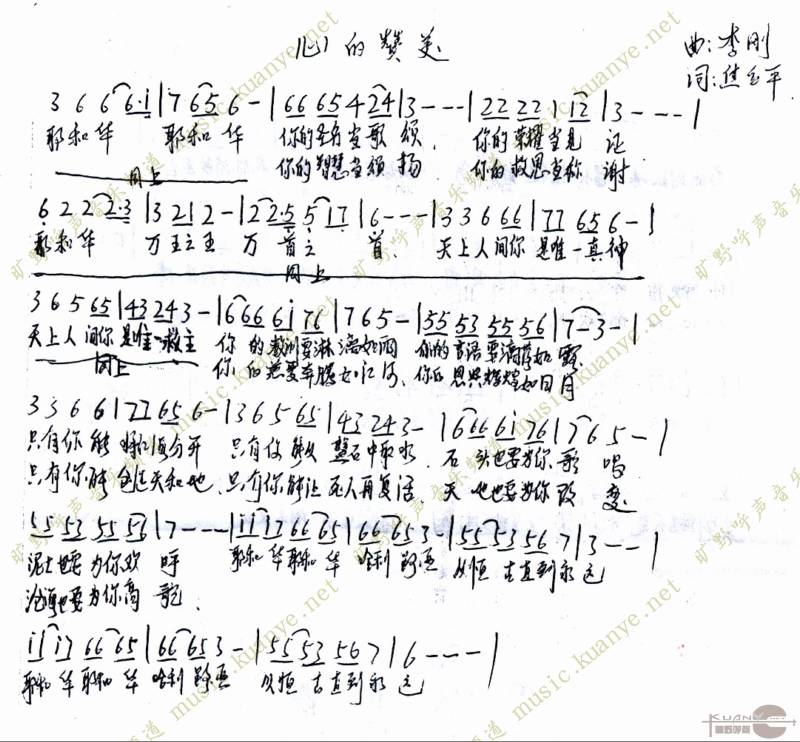 的赞美
曲:李刚
词:焦玉平
3 6 6 6·i | 7 6 5 6 - | 6 6 6 5 4 2 4 | 3 - - - | 2 2 2 2 1 1 2 | 3 - - - |
耶和华 耶和华 你的圣名当歌颂 你的荣耀当见证
同上 你的智慧当颂扬 你的救恩当称谢
6 2 2 2·3 | 3 2 1 2 - | 2 2·5 5 1 7 | 6 - - - | 3 3 6 6 6 | 7 7 6 5 6 - |
耶和华 万王之王 万首之首 天上人间你是唯一真神
同上
3 6 5 6 5 | 4 3 2 4 3 - | 6 6 6 6 i 7 6 | 7 6 5 - | 5 5 5 3 5 5 5 6 | 7 - 3 - |
天上人间你是唯一救主 你的教训要淋漓如雨 你的言语要滴落如露
同上 你的慈爱奔腾如江河 你的恩典辉煌如日月
3 3 6 6 | 7 7 6 5 6 - | 3 6 5 6 5 | 4 3 2 4 3 - | 6 6 6 6 i 7 6 | 7 6 5 - |
只有你能 分开 只有你能从磐石中取水 石头也要为你歌唱
只有你能创造天和地 只有你能让死人再复活 天地也要为你改变
5 5 5 3 5 5 5 6 | 7 - - - | i i i 7 6 6 6 5 | 6 6 6 5 3 - | 5 5 5 3 5 6 7 | 3 - - - |
泥土也要为你欢呼 耶和华耶和华 哈利路亚 从恒古直到永远
沧海也要为你高歌
i i i 7 6 6 6 5 | 6 6 6 5 3 - | 5 5 5 3 5 6 7 | 6 - - - |
耶和华耶和华 哈利路亚 从恒古直到永远
旷野呼声音乐频道 music.kuanye.net
KUANYE.NET
旷野呼声